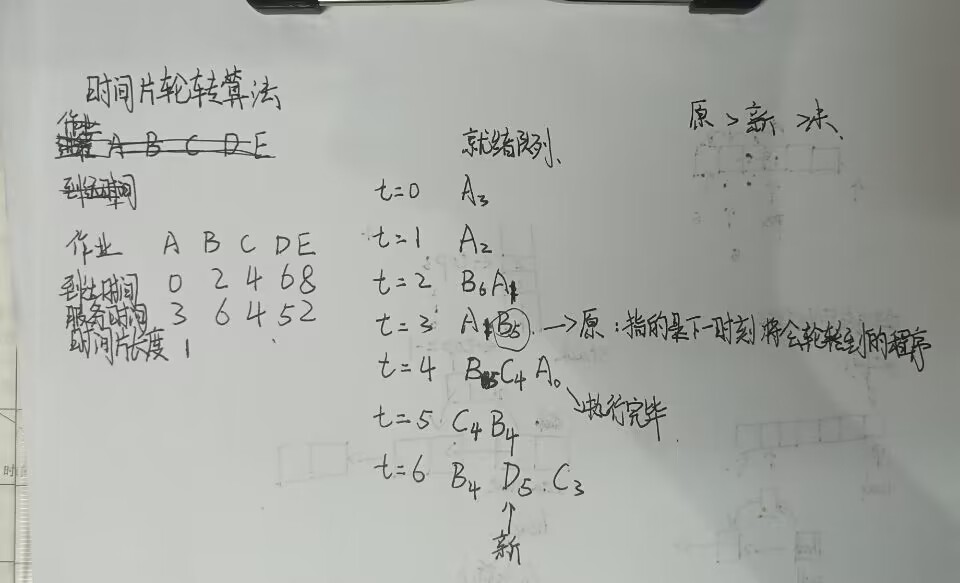 时间片轮转算法
作业
A B C D E
到达时间
作业 A B C D E
到达时间 0 2 4 6 8
服务时间 3 6 4 5 2
时间片长度 1
就绪队列
t=0 A3
t=1 A2
t=2 B6 A1
t=3 A1 B5 → 原:指的是下一时刻将会轮转到的程序
t=4 B5 C4 A0
执行完毕
t=5 C4 B4
t=6 B4 D5 C3
↑
新
原 > 新 > 末